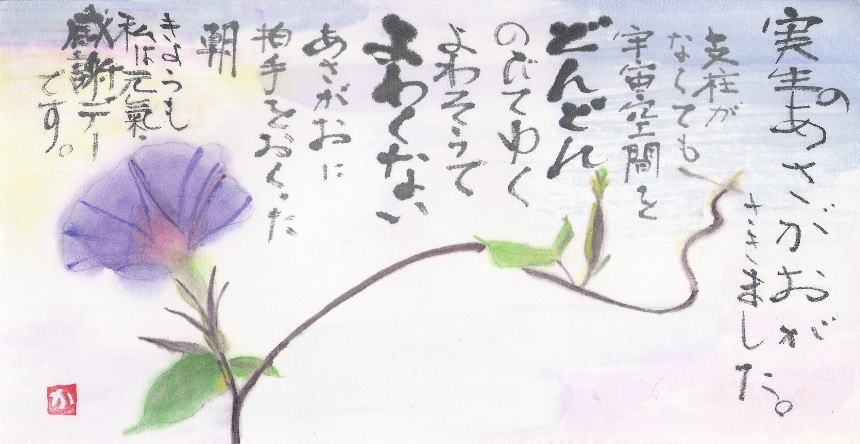 実生のあさがおが
さきました。
支柱が
なくても
宇宙空間を
どんどん
のびてゆく
よわそうで
よわくない
あさがおに
拍手をおくった
朝
きょうも
私は元氣・
感謝デー
です。
か